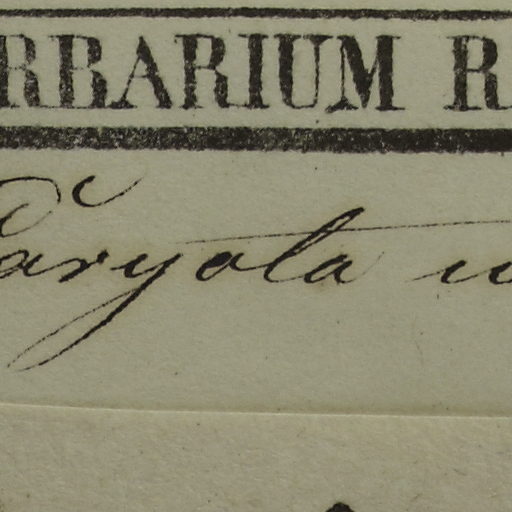 RBARIUM R
Caryota u